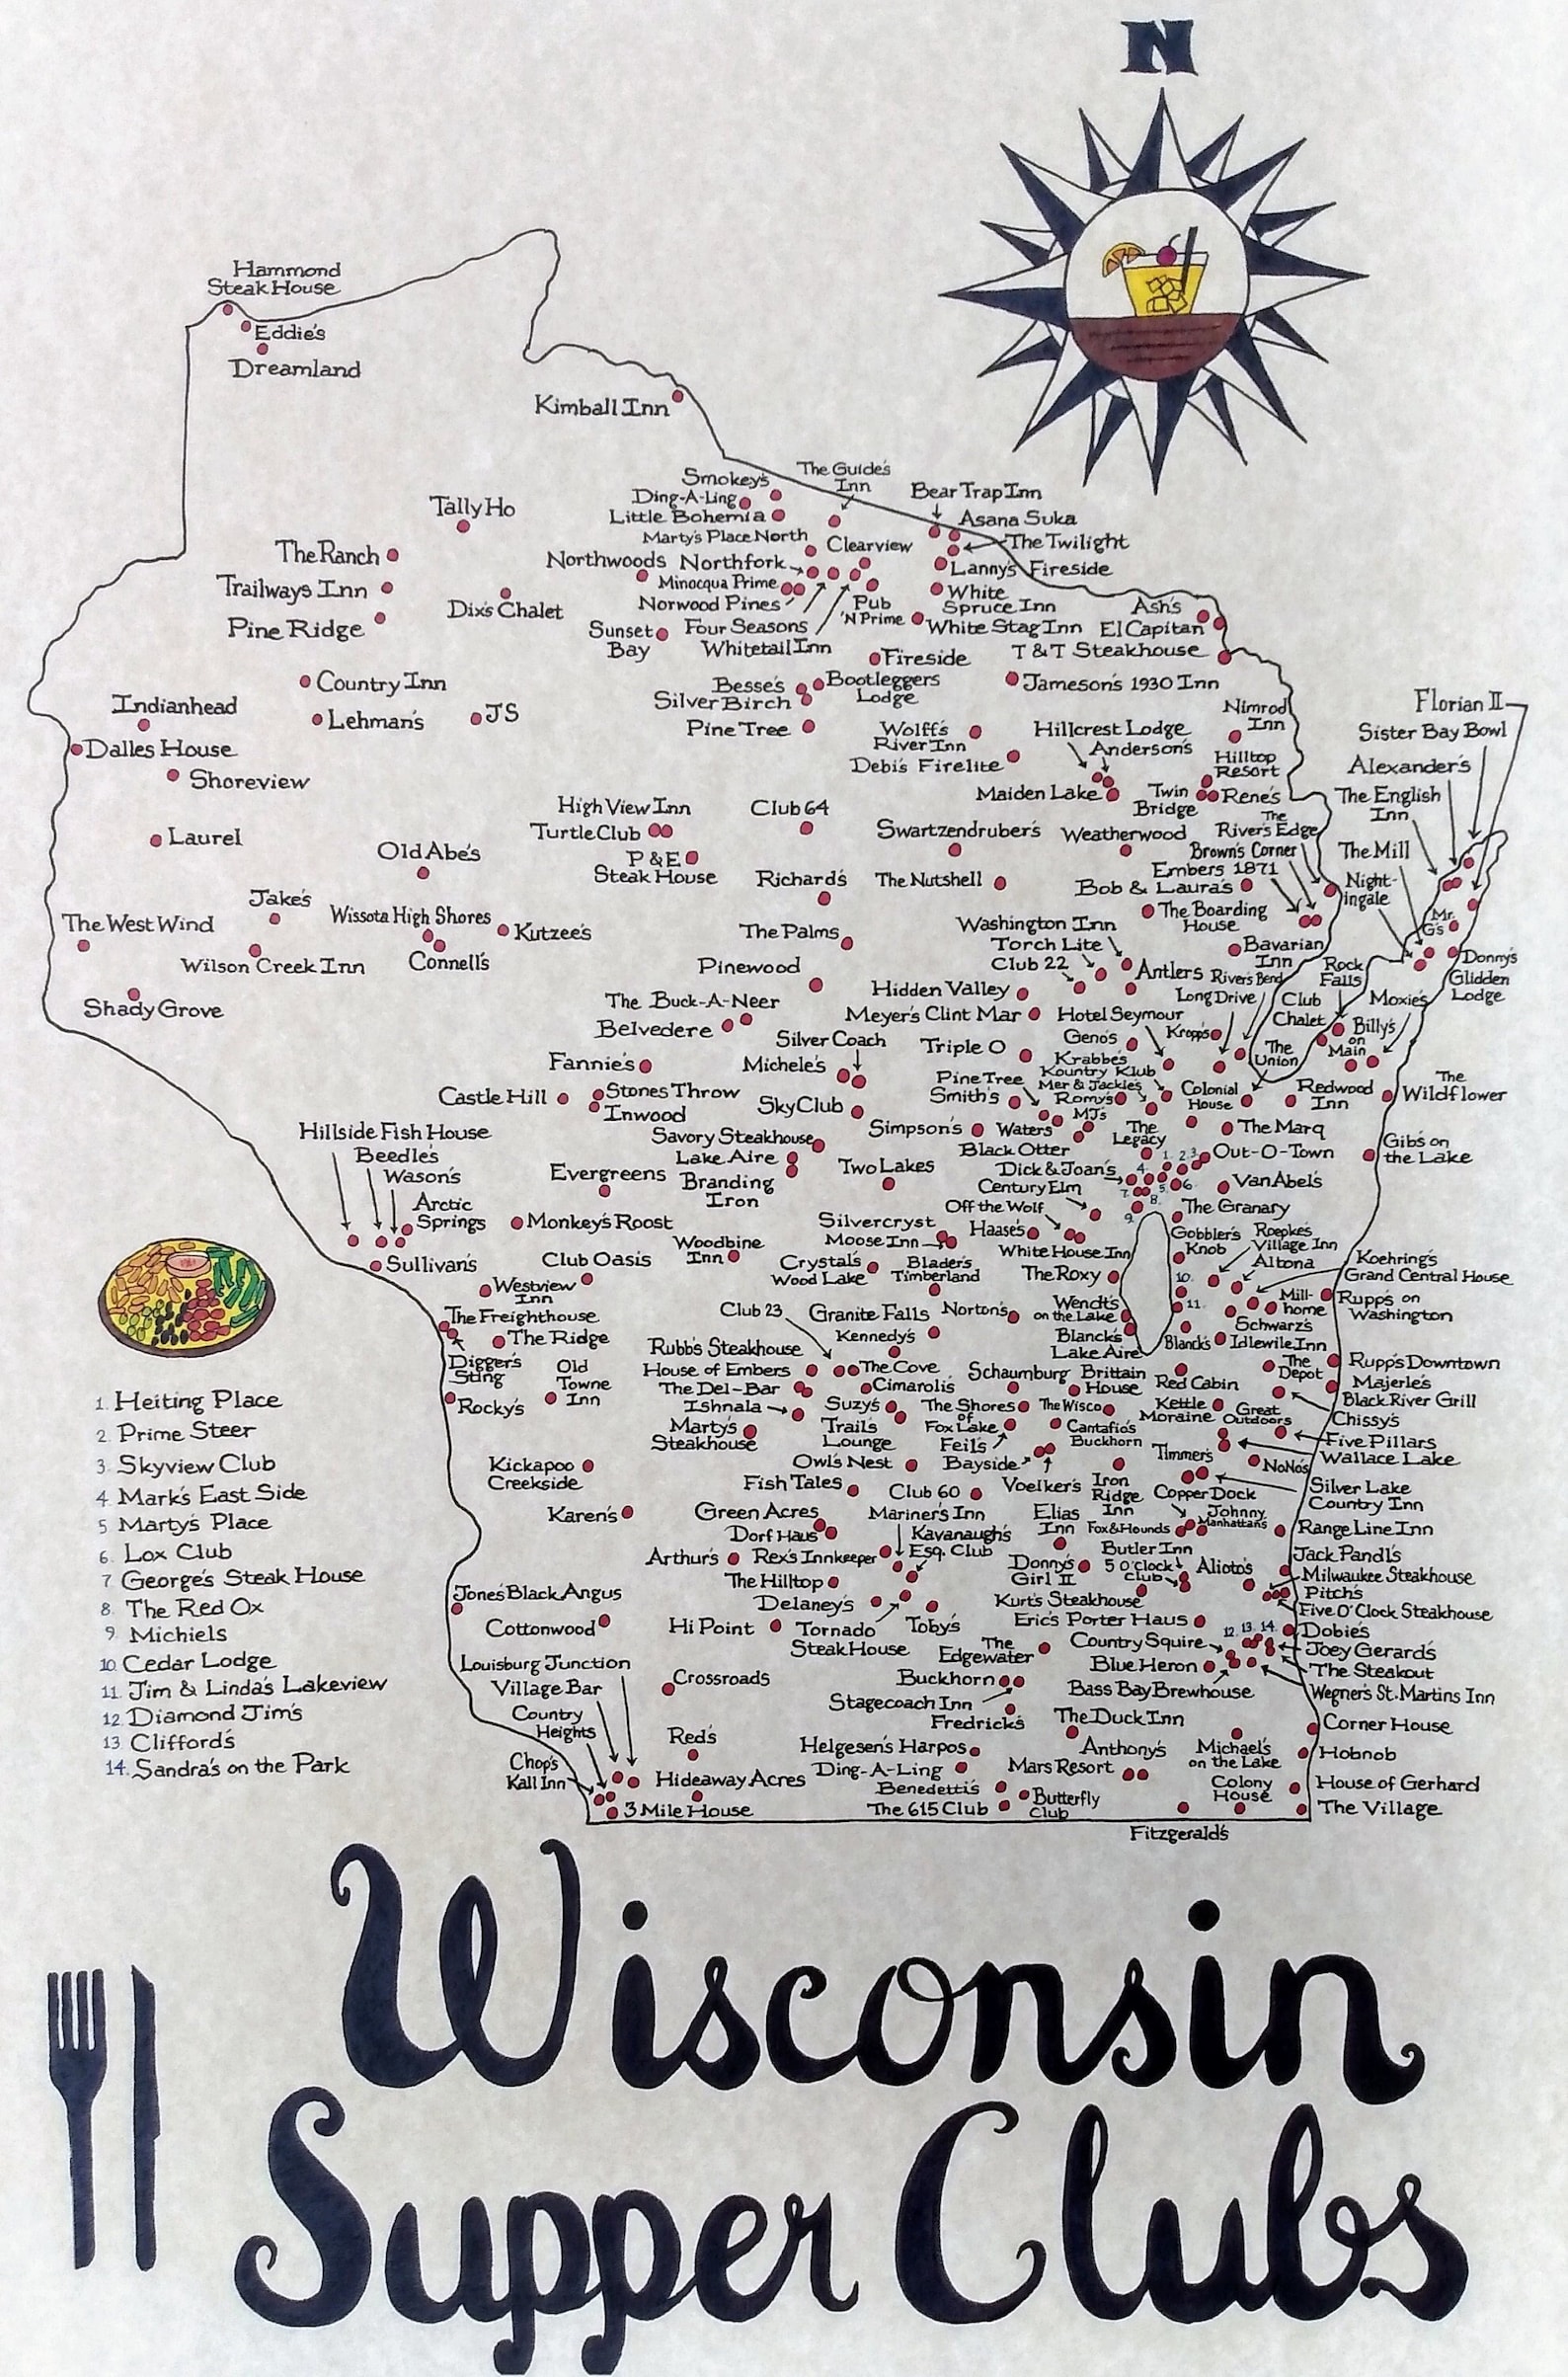 N
Hammond
Steak House
Eddie's
Dreamland
Kimball Inn
Smokey's
Ding-A-Ling
Little Bohemia
Marty's Place North
The Guide's
Inn
Bear Trap Inn
Asana Suka
The Twilight
Clearview
Tally Ho
The Ranch
Northwoods
Northfork
Lanny's Fireside
Trailways Inn
Minocqua Prime
White
Spruce Inn
Dix's Chalet
Norwood Pines
Pub
'N Prime
Ash's
Pine Ridge
Sunset
Bay
Four Seasons
White Stag Inn
El Capitan
Whitetail Inn
Fireside
T & T Steakhouse
Country Inn
Besse's
Bootleggers
Lodge
Jameson's 1930 Inn
Silver Birch
Indianhead
Lehman's
JS
Pine Tree
Wolff's
River Inn
Hillcrest Lodge
Anderson's
Nimrod
Inn
Florian II
Sister Bay Bowl
Dalles House
Debi's Firelite
Hilltop
Resort
Alexander's
Shoreview
Maiden Lake
Twin
Bridge
Rene's
The English
Inn
High View Inn
Club 64
Turtle Club
Swartzendruber's
Weatherwood
The
River's Edge
Laurel
Old Abe's
P & E
Steak House
Brown's Corner
The Mill
Embers 1871
Richard's
The Nutshell
Bob & Laura's
Night-
ingale
Jake's
The Boarding
House
Mr.
G's
The West Wind
Wissota High Shores
Kutzee's
The Palms
Washington Inn
Torch Lite
Bavarian
Inn
Donny's
Glidden
Lodge
Wilson Creek Inn
Connell's
Pinewood
Club 22
Antlers
River's Bend
Rock
Falls
Shady Grove
The Buck-A-Neer
Hidden Valley
Long Drive
Club
Chalet
Moxie's
Belvedere
Meyer's Clint Mar
Hotel Seymour
Kropp's
Billy's
on
Main
Silver Coach
Triple O
Geno's
The
Union
Fannie's
Michele's
Krabbe's
Kountry Klub
Castle Hill
Stones Throw
Pine Tree
Mer & Jackie's
Colonial
House
Redwood
Inn
The
Wildflower
Inwood
Sky Club
Smith's
Romy's
MJ's
Hillside Fish House
Savory Steakhouse
Simpson's
Waters
The
Legacy
The Marq
Gib's on
the Lake
Beedle's
Lake Aire
Black Otter
1. 2. 3.
Out-O-Town
Wason's
Evergreens
Branding
Iron
Two Lakes
Dick & Joan's
4.
5.
6.
Van Abel's
Century Elm
7.
8.
Arctic
Springs
Monkey's Roost
Off the Wolf
9.
The Granary
Silvercryst
Moose Inn
Haase's
Gobbler's
Knob
Roepke's
Village Inn
Sullivan's
Club Oasis
Woodbine
Inn
White House Inn
Altona
Koehring's
Crystal's
Wood Lake
Blader's
Timberland
The Roxy
10.
Grand Central House
Westview
Inn
Mill-
home
Rupp's on
Washington
The Freighthouse
Club 23
Granite Falls
Norton's
Wendt's
on the Lake
11.
Schwarz's
The Ridge
Kennedy's
Blanck's
Lake Aire
Blanck's
Idlewile Inn
Digger's
Sting
Old
Towne
Inn
Rubb's Steakhouse
House of Embers
The Cove
Schaumburg
Brittain
House
Red Cabin
The
Depot
Rupp's Downtown
The Del-Bar
Cimaroli's
Majerle's
Black River Grill
Rocky's
Ishnala
Suzy's
The Shores
of
Fox Lake
The Wisco
Kettle
Moraine
Great
Outdoors
Chissy's
Marty's
Steakhouse
Trail's
Lounge
Cantafio's
Buckhorn
Five Pillars
Feil's
Timmer's
Wallace Lake
Kickapoo
Creekside
Owl's Nest
Bayside
NoNo's
Fish Tales
Club 60
Voelker's
Iron
Ridge
Inn
Copper Dock
Silver Lake
Country Inn
Karen's
Green Acres
Mariner's Inn
Elias
Inn
Johnny
Manhattan's
Dorf Haus
Kavanaugh's
Esq. Club
Fox & Hounds
Range Line Inn
Arthur's
Rex's Innkeeper
Butler Inn
Jack Pandl's
The Hilltop
Donny's
Girl II
5 O'clock
Club
Alioto's
Milwaukee Steakhouse
Jones' Black Angus
Delaney's
Kurt's Steakhouse
Pitch's
Five O'Clock Steakhouse
Cottonwood
Hi Point
Tornado
Steak House
Toby's
Eric's Porter Haus
12. 13. 14.
Dobie's
Louisburg Junction
The
Edgewater
Country Squire
Joey Gerard's
Village Bar
Crossroads
Buckhorn
Blue Heron
The Steakout
Country
Heights
Stagecoach Inn
Bass Bay Brewhouse
Wegner's St. Martins Inn
Fredrick's
The Duck Inn
Corner House
Chop's
Kall Inn
Red's
Helgesen's Harpos
Anthony's
Michael's
on the Lake
Hobnob
Hideaway Acres
Ding-A-Ling
Mars Resort
Benedetti's
Colony
House
House of Gerhard
3 Mile House
The 615 Club
Butterfly
Club
The Village
Fitzgerald's
1. Heiting Place
2. Prime Steer
3. Skyview Club
4. Mark's East Side
5. Marty's Place
6. Lox Club
7. George's Steak House
8. The Red Ox
9. Michiels
10. Cedar Lodge
11. Jim & Linda's Lakeview
12. Diamond Jim's
13. Clifford's
14. Sandra's on the Park
Wisconsin
Supper Clubs